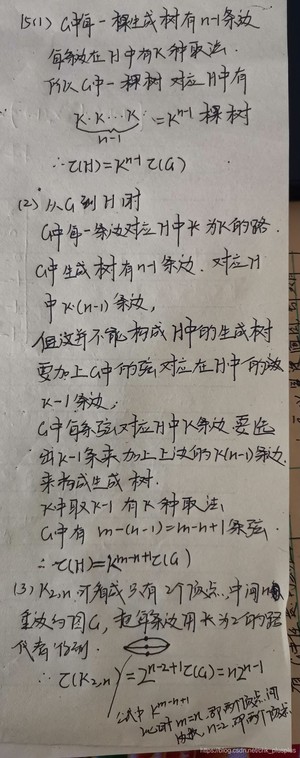 15(1) G中每一棵生成树有n-1条边
每条边在H中有K种取法.
所以G中一棵树 对应H中有
K·K···K = K^{n-1} 棵树
n-1
∴ τ(H)=K^{n-1} τ(G)
(2) 从G到H时
G中每一条边对应H中长为K的路.
G中生成树有n-1条边. 对应H
中K·(n-1)条边,
但这并不能构成H中的生成树
要加上G中的弦对应在H中的
K-1条边.
G中每条弦对应H中K条边 要选
出K-1条来加上上边的K(n-1)条边.
来构成生成树.
K中取K-1 有K种取法
G中有 m-(n-1)=m-n+1条弦.
∴ τ(H)=K^{m-n+1}τ(G)
(3) K_{2,n} 可看成只有2个顶点.中间n
重边的图G, 把每条边用长为2的路
代替得到.
∴ τ(K_{2,n})=2^{n-2+1}τ(G)=n2^{n-1}
公式中 K^{m-n+1}
此时 m=n, 即两个顶点间
n=2. 即两个顶点